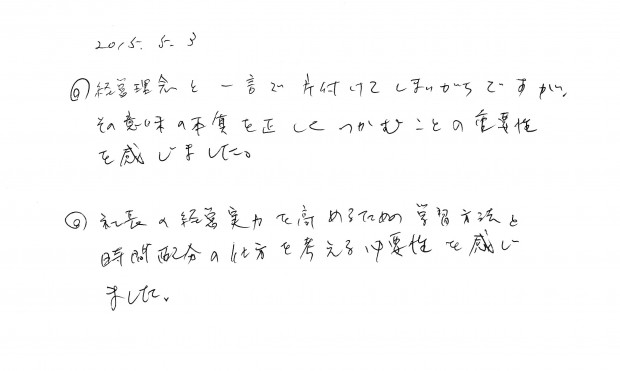 2015. 5. 3
◎経営理念と一言で片付けてしまいがちですが、
その意味の本質を正しくつかむことの重要性
を感じました。
◎社長の経営実力を高めるための学習方法と
時間配分の仕方を考える必要性を感じ
ました。